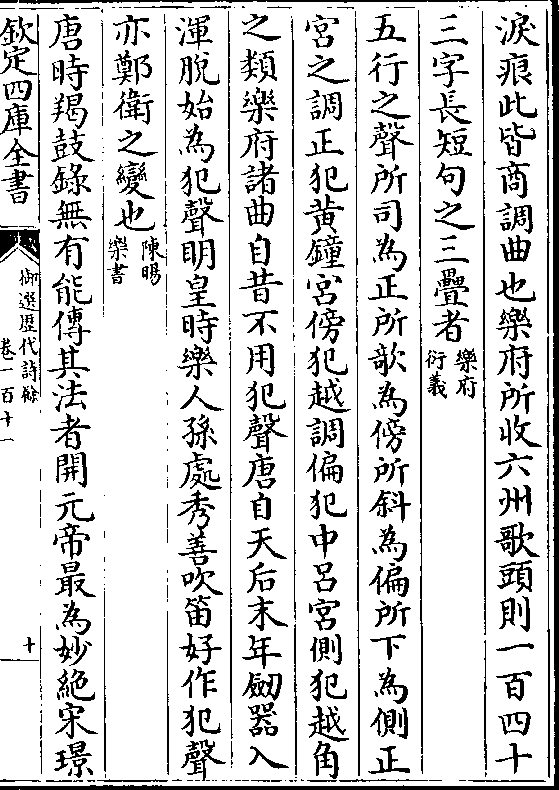 淚痕此皆商調曲也樂府所收六州歌頭則一百四十
三字長短句之三疊者樂府衍義
五行之聲所司為正所歌為傍所斜為偏所下為側正
宮之調正犯黃鐘宮傍犯越調偏犯中呂宮側犯越角
之類樂府諸曲自昔不用犯聲唐自天后末年劒器入
渾脫始為犯聲明皇時樂人孫處秀善吹笛好作犯聲
亦鄭衛之變也陳暘樂書
唐時羯鼓錄無有能傳其法者開元帝最為妙絶宋璟
欽定四庫全書
御選歷代詩餘
卷一百十一
十